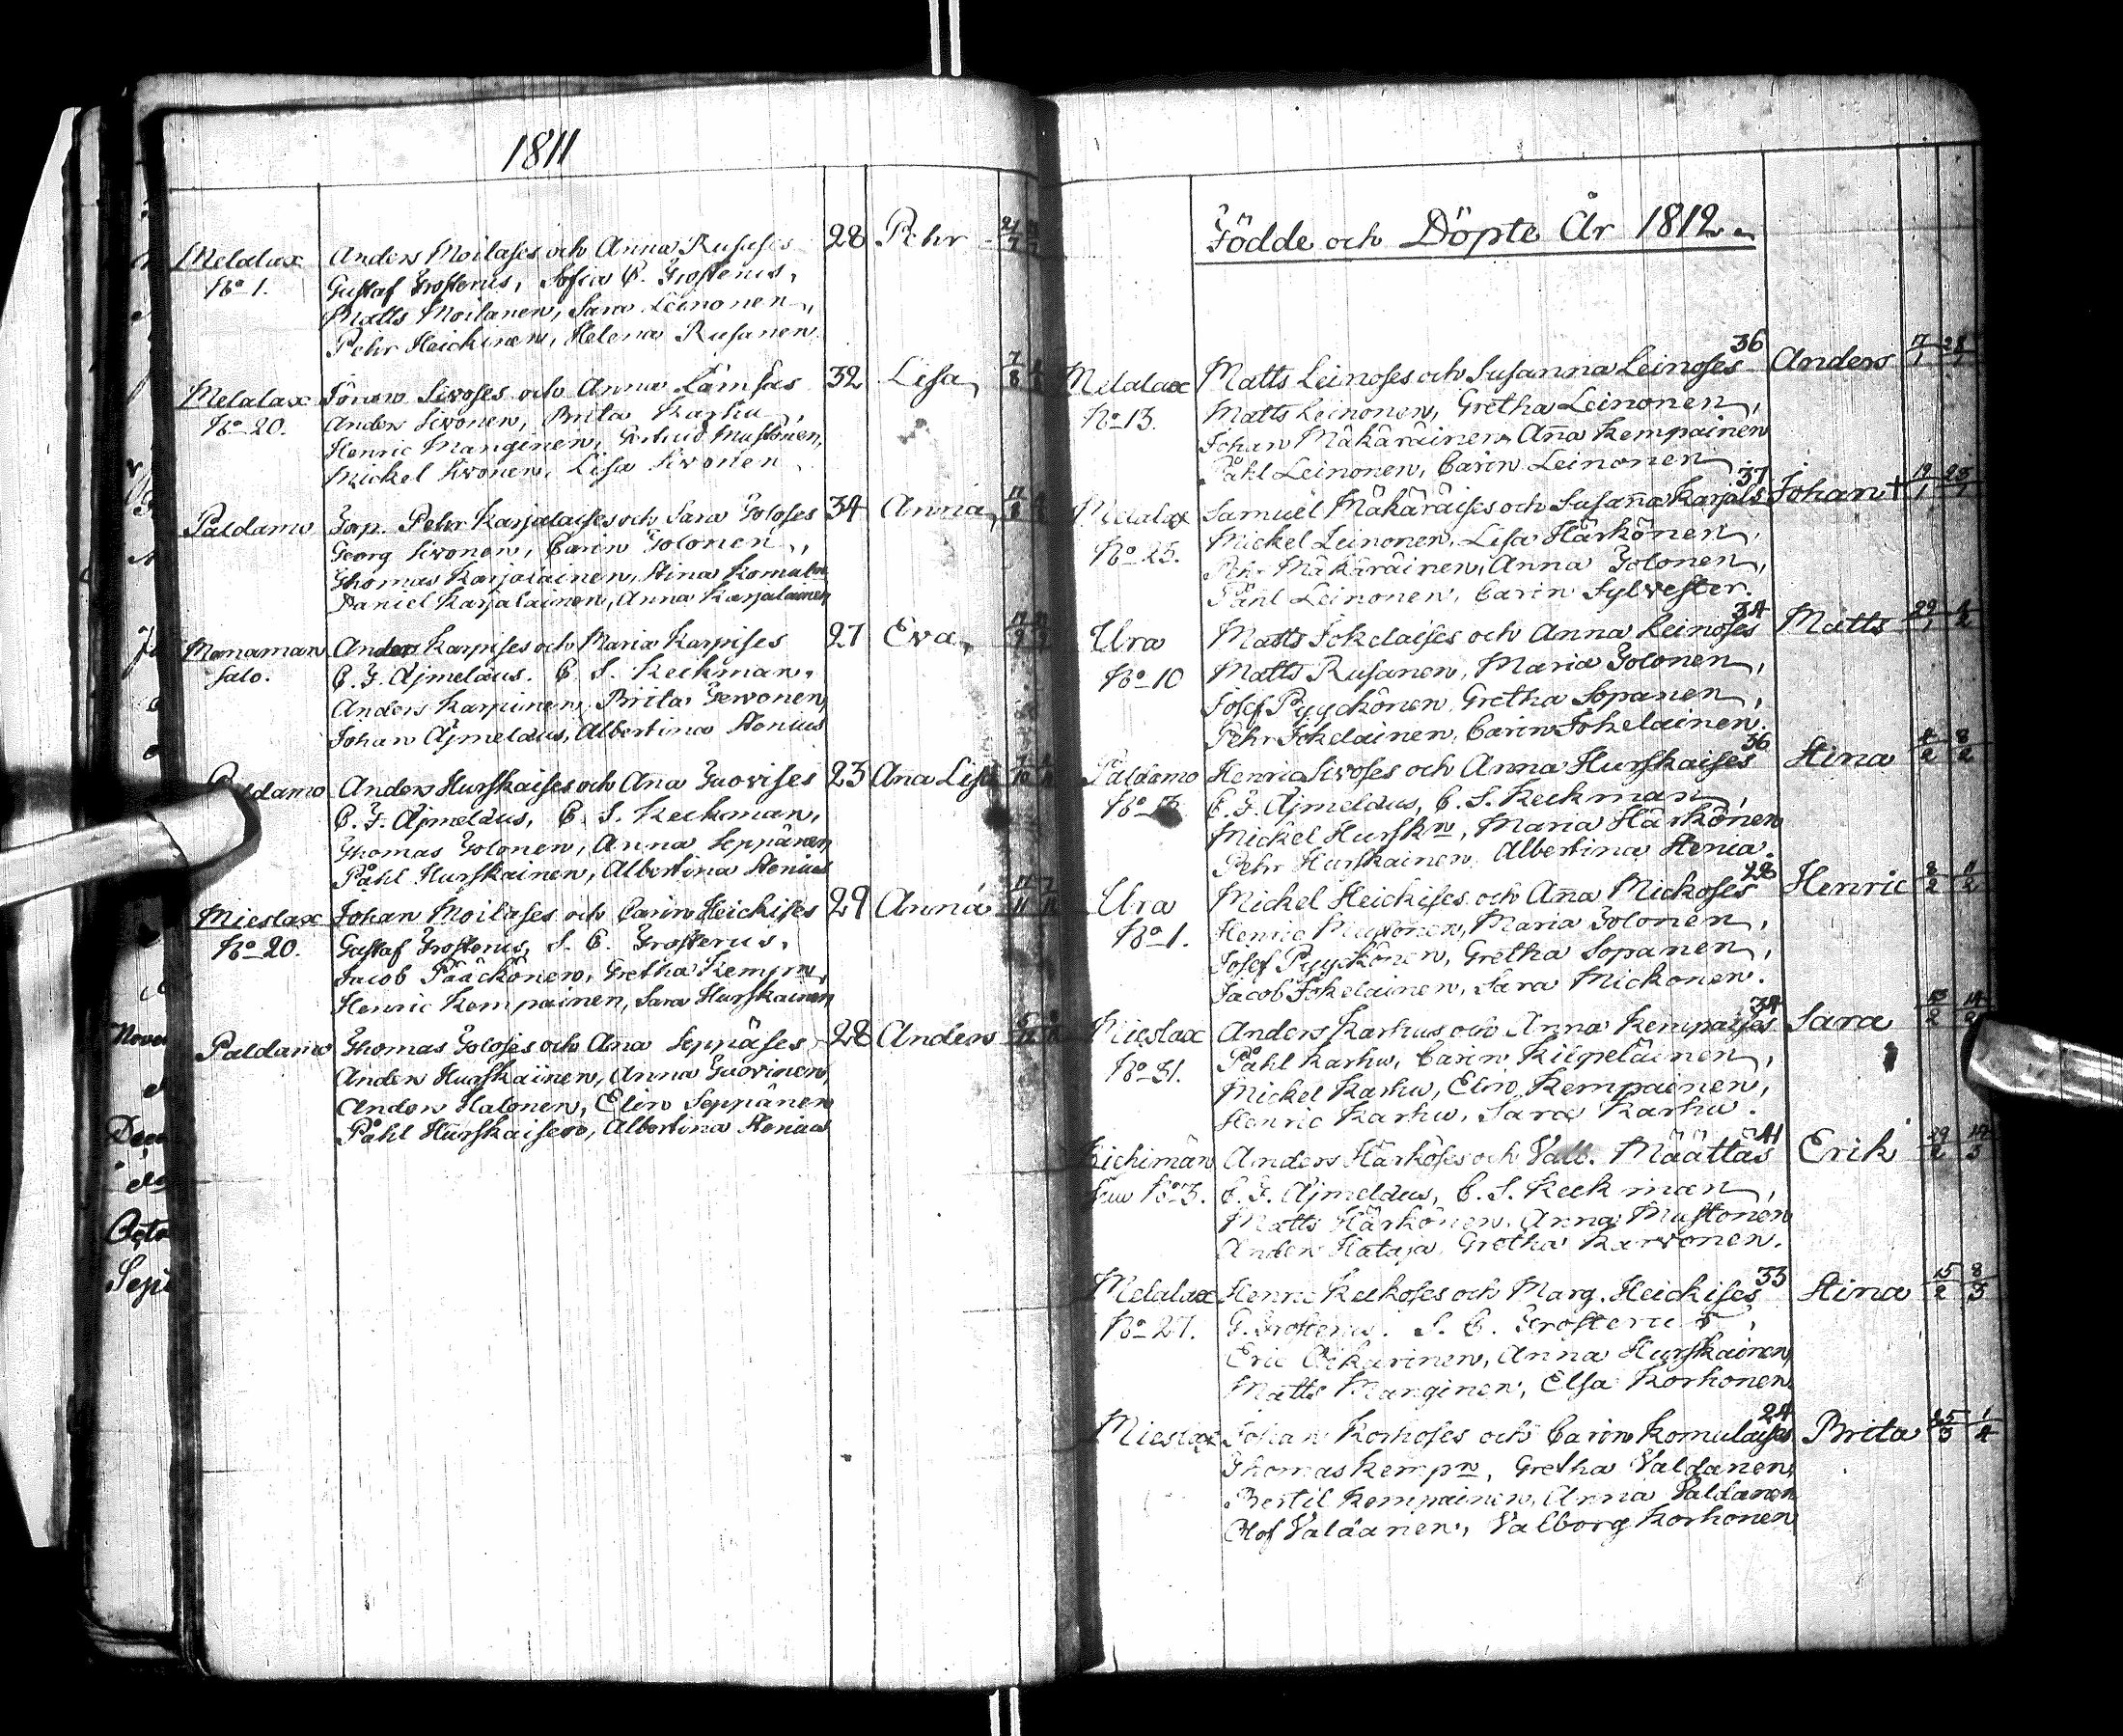 1811
Melalax Anders Moilases och Anna Rusases 28 Pehr
No 1. Gustaf Frosterus, Sofia C. Frosterus,
Matts Moilanen, Sara Leinonen,
Pehr Heickinen, Helena Rusanen
Melalax Jöran Sivoses och Anna Lämsäs 32 Lisa
No 20. Anders Sivonen, Brita Karhu,
Henric Manginen, Gertrud Mustonen,
Mickel Sivonen, Lisa Sivonen
Paldamo Torp. Pehr Karjalaises och Sara Toloses 34 Anna
Georg Sivonen, Carin Tolonen,
Thomas Karjalainen, Stina Komuln
Daniel Karjalainen, Anna Karjalainen
Manaman Anders Karpises och Maria Karpises 27 Eva
salo. C. F. Ajmelaus. C. S. Keckman,
Anders Karpinen, Brita Tervonen,
Johan Ajmelaus, Albertina Stenius
Paldamo Anders Hurskaises och Ana Tuovises 23 Ana Lisa
C. F. Ajmelaus, C. S. Keckman,
Thomas Tolonen, Anna Seppänen
Påhl Hurskainen, Albertina Stenius
Mieslax Johan Moilases och Carin Heickises 29 Anna
No 20. Gustaf Frosterus, S. C. Frosterus,
Jacob Pääckönen, Gretha Kempn,
Henric Kempainen, Sara Hurskainen
Paldamo Thomas Toloses och Ana Seppäses 28 Anders
Anders Hurskainen, Anna Tuovinen,
Anders Halonen, Elin Seppänen
Påhl Hurskaisen, Albertina Stenius
Födde och Döpte År 1812.
36
Melalax Matts Leinoses och Susanna Leinoses Anders 17/1 28/1
No 13. Matts Leinonen, Gretha Leinonen,
Johan Mäkäräinen, Anna Kempainen
Påhl Leinonen, Carin Leinonen
37
Melalax Samuel Mäkäräises och Susanna Karjals Johan +
No 25. Mickel Leinonen, Lisa Härkönen,
Pehr Mäkäräinen, Anna Tolonen,
Påhl Leinonen, Carin Sylvester.
34
Ura Matts Jokelaises och Anna Leinoses Matts
No 10 Matts Rusanen, Maria Tolonen,
Josef Pyyckönen, Gretha Sopanen,
Pehr Jokelainen, Carin Jokelainen.
36
Paldamo Henric Sivoses och Anna Hurskaises Stina 4/2 8/2
No C. F. Ajmelaus, C. S. Keckman,
Mickel Hurskn, Maria Härkönen
Pehr Hurskainen, Albertina Stenia.
28
Ura Mickel Heickises och Anna Mickoses Henric 8/2 11/2
No 1. Henric Mustonen, Maria Tolonen,
Josef Pyyckönen, Gretha Sopanen,
Jacob Jokelainen, Sara Mickonen.
34
Mieslax Anders Karhus och Anna Kempaises Sara
No 31. Påhl Karhu, Carin Kilpeläinen,
Mickel Karhu, Elin Kempainen,
Henric Karhu, Sara Karhu.
41
Anders Härköses och Valb. Määttäs Erik
No 3. C. F. Ajmelaus, C. S. Keckman,
Matts Härkönen, Anna Mustonen
Anders Hataja, Gretha Karvonen.
33
Melalax Henric Keckoses och Marg. Heickises Stina 15/2 8/3
No 27. G. Frosterus. S. C. Frosterus,
Eric Ockarinen, Anna Hurskainen,
Matts Manginen, Elsa Korhonen
24
Mieslax Johan Korhoses och Carin Komulaises Brita 25/3 1/4
Thomas Kempn, Gretha Valdanen,
Bertil Kempainen, Anna Valdanen
Olof Valdanen, Valborg Korhonen